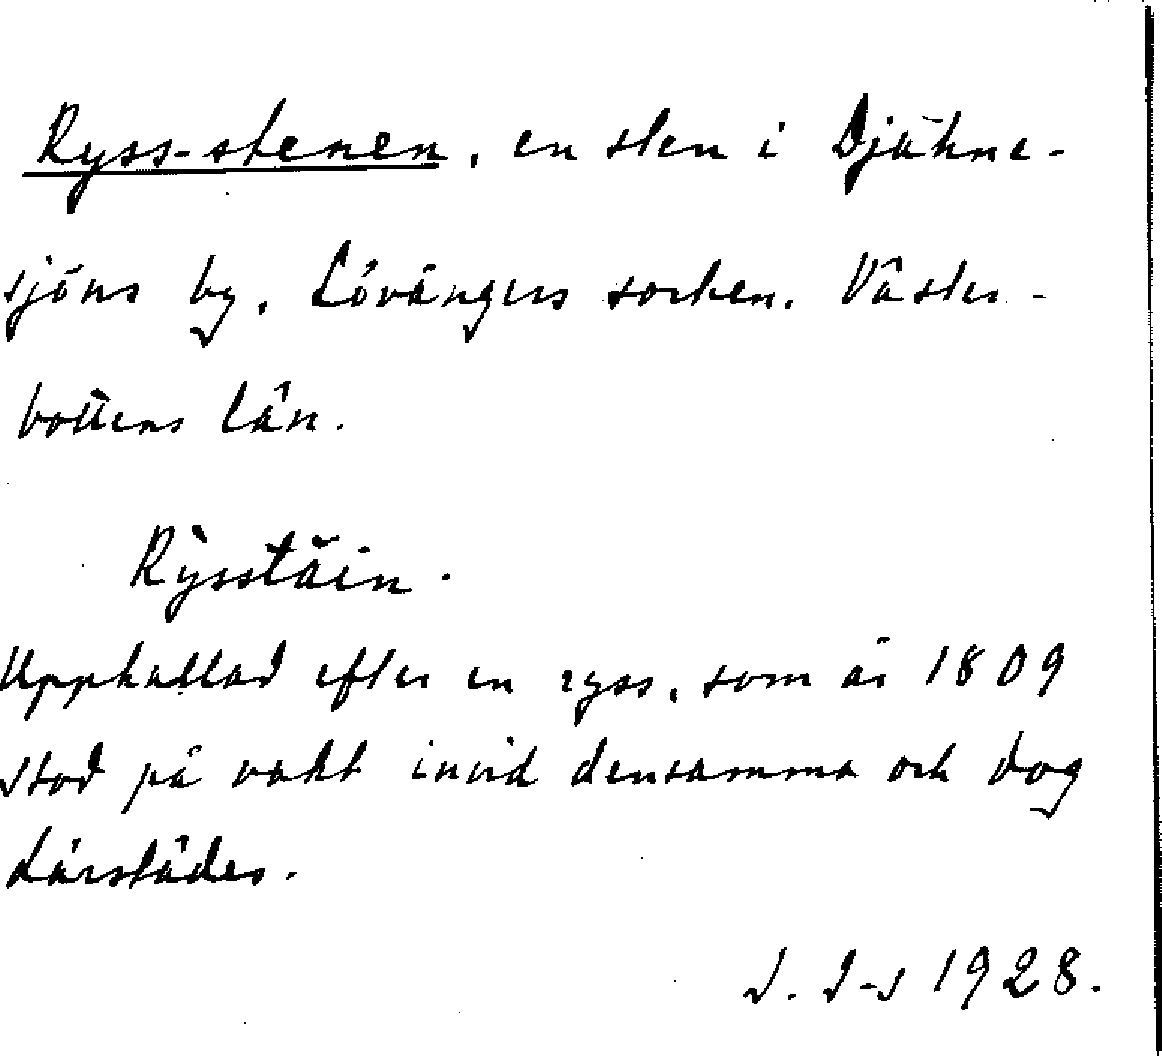 Ryss-stenen, en sten i Djäkne-
sjöns by, Lövångers socken, Väster-
bottens län.
Rỳsstäin.
Uppkallad efter en ryss, som år 1809
stod på vakt invid densamma och dog
därstädes.
1928.